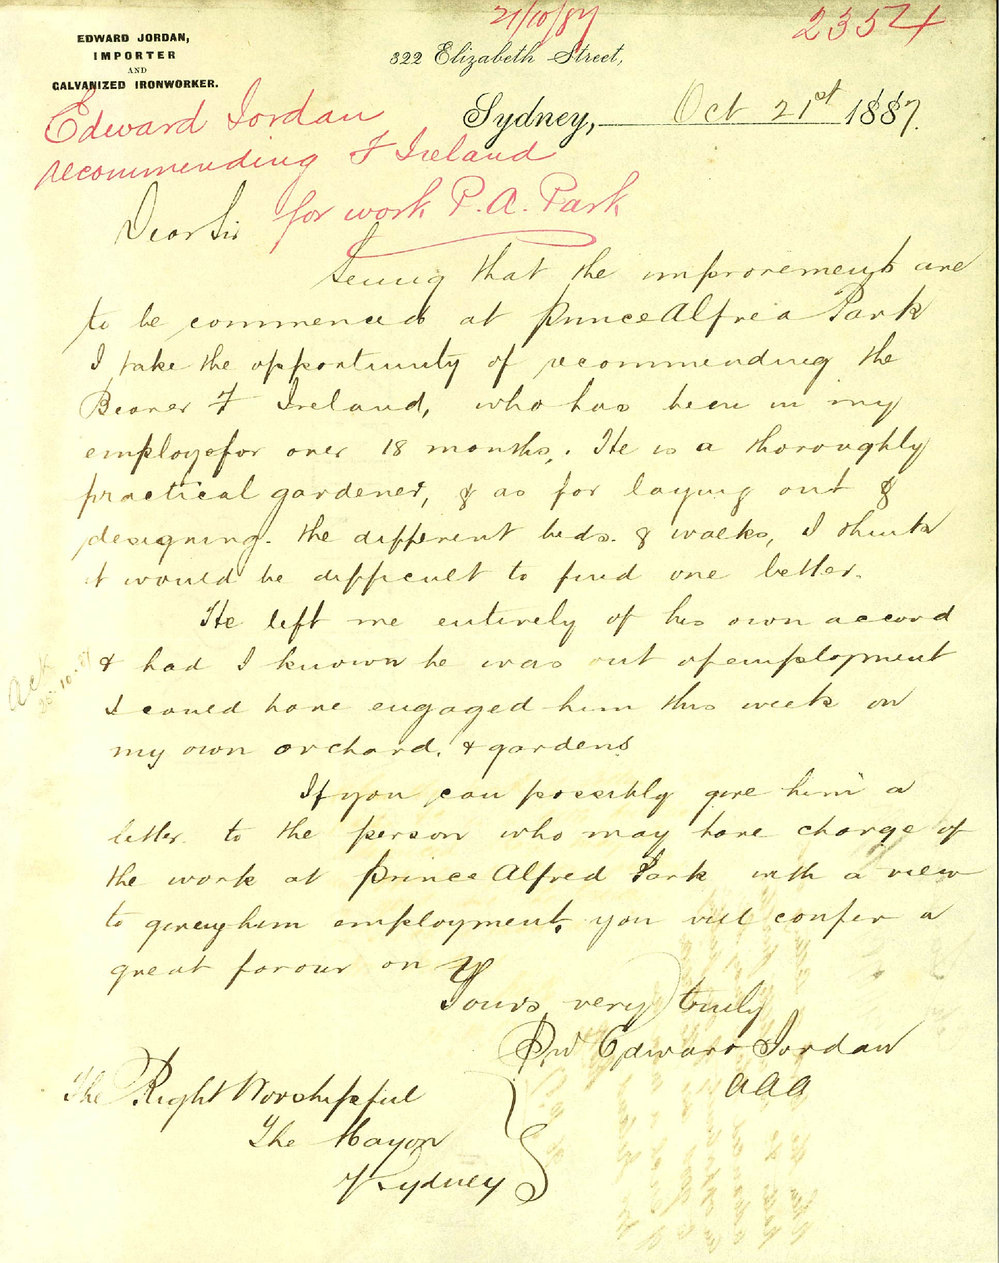 21/10/87
2354
EDWARD JORDAN,
IMPORTER
AND
GALVANIZED IRONWORKER.
322 Elizabeth Street,
Sydney, Oct 21st 1887.
Edward Jordan
recommending F Ireland
for work P. A. Park
Dear Sir
Seeing that the improvements are
to be commenced at Prince Alfred Park
I take the opportunity of recommending the
Bearer F Ireland, who has been in my
employ for over 18 months,. He is a thoroughly
practical gardener, & as for laying out &
designing. the different beds. & walks, I think
it would be difficult to find one better.
He left me entirely of his own accord
& had I known he was out of employment
I could have engaged him this week on
my own orchard. & gardens
Ack
25.10.87
If you can possibly give him a
letter. to the person who may have charge of
the work at Prince Alfred Park with a view
to giving him employment, you will confer a
great favour on
Yours very truly
Edward Jordan
The Right Worshipful
The Mayor
of Sydney